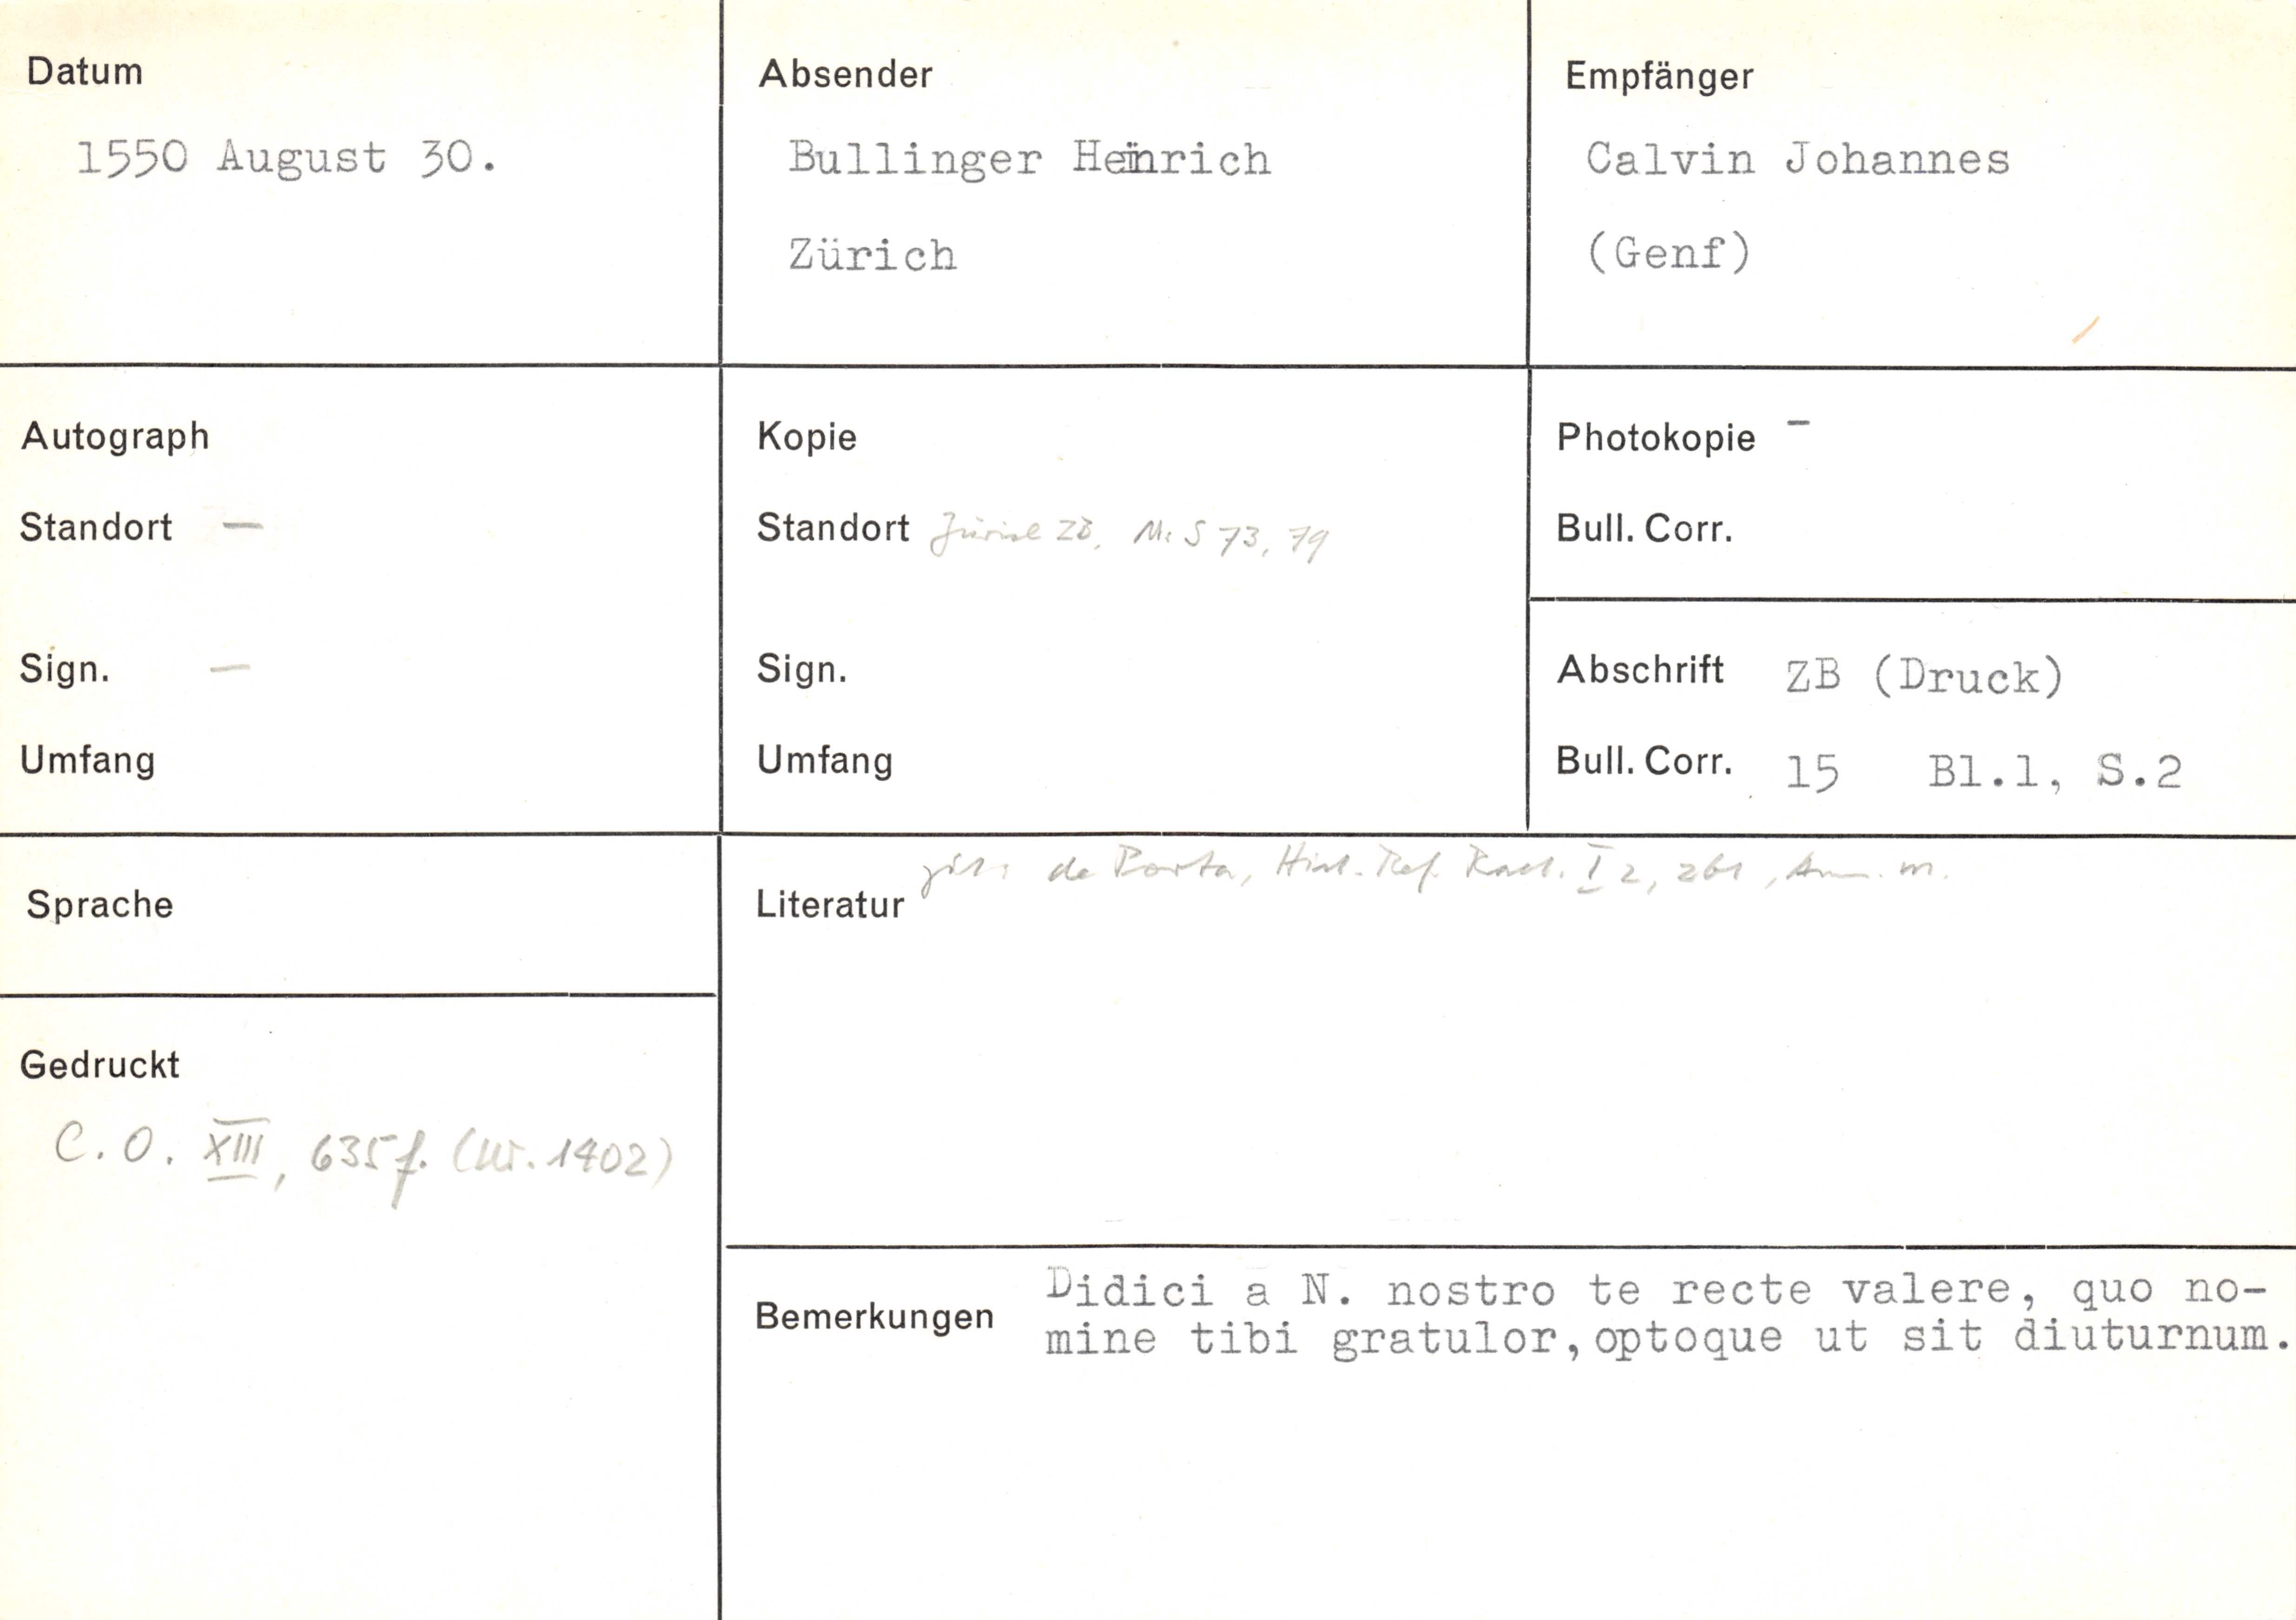 Datum
1550 August 30.
Absender
Bullinger Heinrich
Zürich
Empfänger
Calvin Johannes
(Genf)
Autograph
Standort —
Sign. —
Umfang
Kopie
Standort Zürich ZB, Ms S 73, 79
Sign.
Umfang
Photokopie -
Bull. Corr.
Abschrift ZB (Druck)
Bull. Corr. 15 Bl.1, S.2
Sprache
Gedruckt
C. O. XIII, 635f. (Nr. 1402)
de Porta, Hist. Ref. I 2, 261, Anm. m.
Literatur
Bemerkungen
Didici a N. nostro te recte valere, quo no-
mine tibi gratulor,optoque ut sit diuturnum.